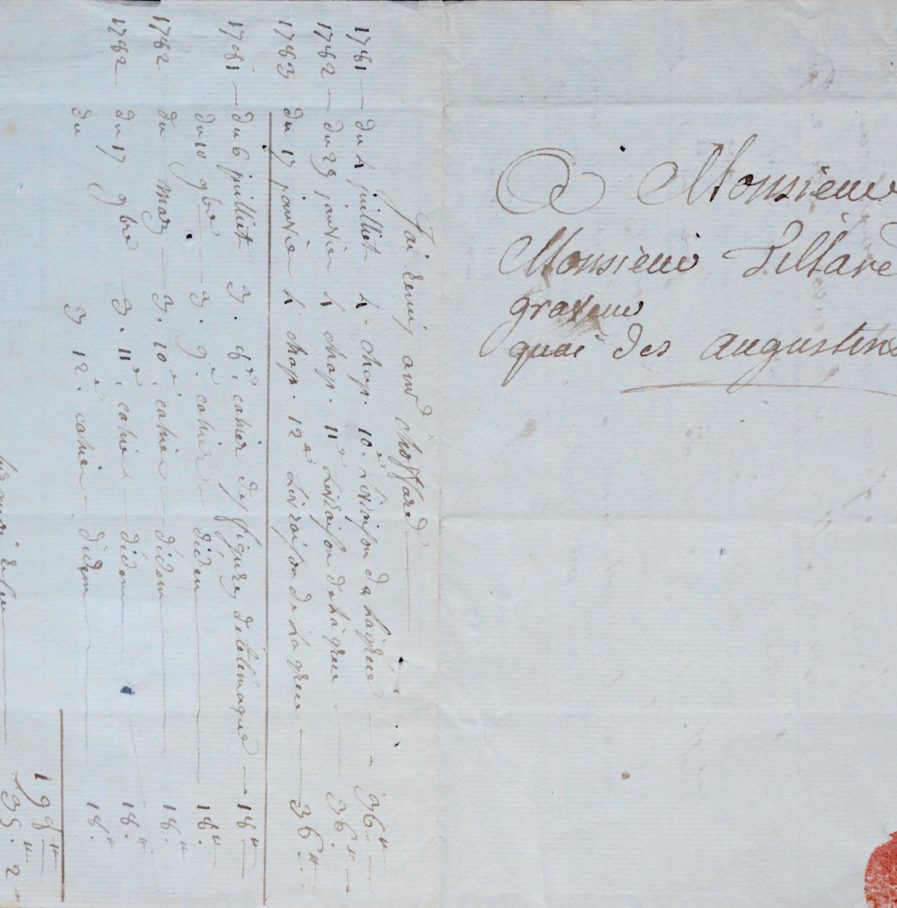 A Monsieur
Monsieur Tilliard
graveur
quai des augustins
J'ai remis a mr choffard
1781 — du 4 juillet 4 chap. 10e Livraison de La grece — 36"
1782 — du 29 janvier 4 chap. 11e Livraison de La grece — 36"
1783 du 17 janvier 4 chap. 12e Livraison de La grece — 36"
1781 — du 6 juillet 3. 8e. cahier des figures de télémaque — 18"
du 10 9bre 3. 9e cahier — idem — 18"
1782 du mars 3. 10e cahier — idem — 18"
1782 du 17 9bre 3. 11e. cahier — idem — 18"
du 3 12e. cahier — idem — 18"
198"
35. 2